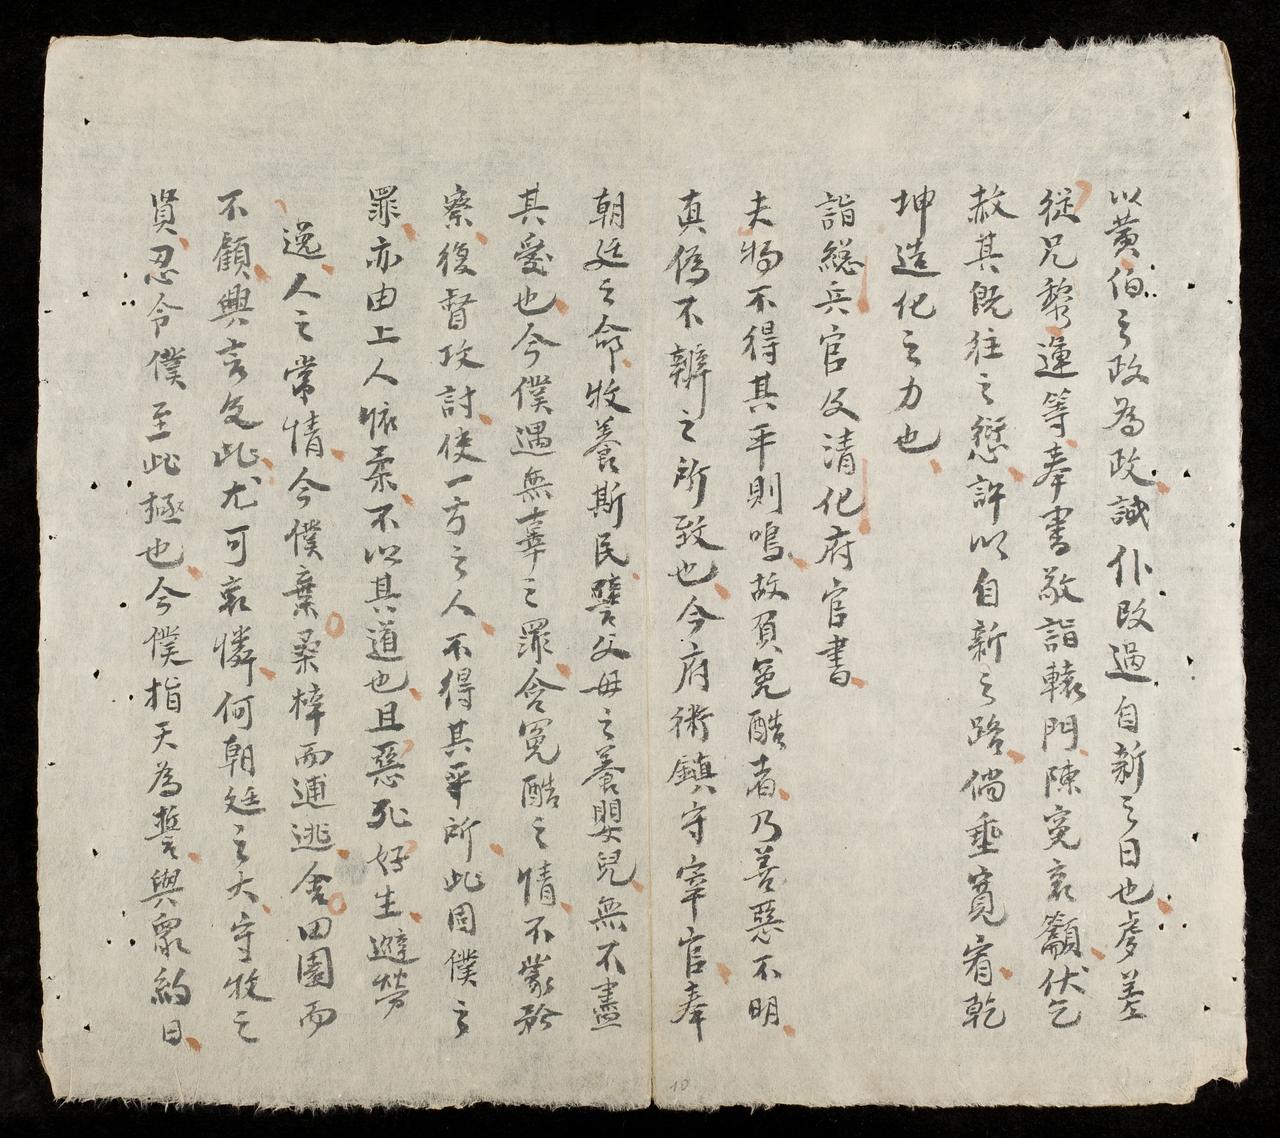 以黄伯之政為政誠仆改過自新之日也虔差
従兄黎運等奉書敬詣轅門陳寃哀籲伏乞
赦其既往之愆許以自新之路倘垂寛宥乾
坤造化之力也
詣総兵官及清化府官書
夫物不得其平則鳴故負寃酷者乃善惡不明
真偽不辨之所致也今府術鎮守宰官奉
朝廷之命牧養斯民譬父毋之養嬰兒無不盡
其愛也今僕遇無辜之罪含寃酷之情不蒙矜
察復督攻討使一方之人不得其平所此固僕之
罪亦由上人懷柔不以其道也且惡死好生避勞
逸人之常情今僕棄桑梓而逋逃舍田園而
不顧興言及此尤可哀憐何朝廷之大守牧之
賢忍令僕至此極也今僕指天為誓與衆約日
10